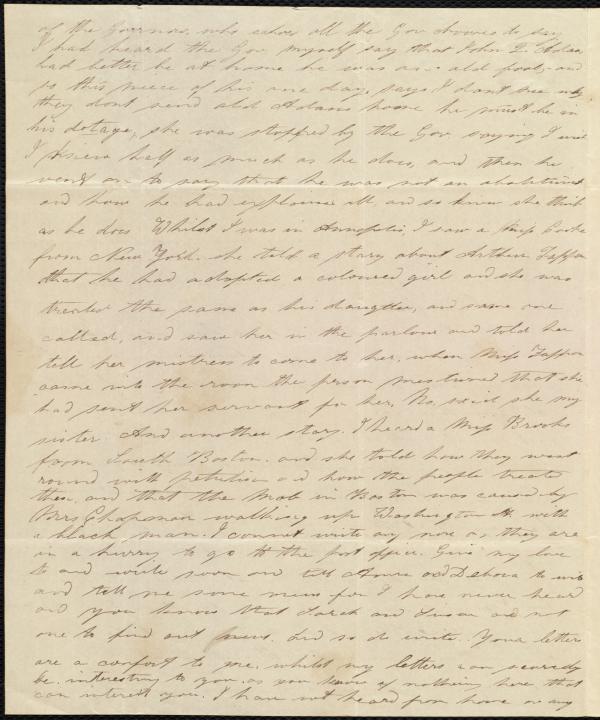 of the Governor, who echoes all the Gov chooses to say
I had heard the Gov myself say that John Q. Adams
had better be at home he was an old fool, and
so this niece of his one day, says I dont see why
they dont send old Adams home he must be in
his dotage, she was stopped by the Gov saying I wish
I knew half as much as he does, and then he
went on to say that he was not an abolitionist
and how he had explained all and so knew she think
as he does. Whilst I was in Annapolis, I saw a Miss
from New York. she told a story about Arthur Tappan
that he had adopted a coloured girl and she was
treated the same as his daughter, and some one
called, and saw her in the parlour and told her
tell her mistress to come to her, when Miss Tappan
came into the room the person mentioned that she
had sent her servant for her, No, said she my
sister. And another story. I heard a Miss Brooks
from South Boston. and she told how they went
round with petitions and how the people treated
them, and that the Mob in Boston was caused by
Mrs Chapman walking up Washington St. with
a black man. I cannot write any more as they are
in a hurry to go to the post office. Give my love
to and write soon and tell Anne and Debora to write
and tell me some news for I have never heard
and you know that Sarah and Susan are not
one to find out news. And so do write. Your letters
are a comfort to me, whilst my letters can scarcely
be interesting to you. as you know of nothing here that
can interest you. I have not heard from home or any